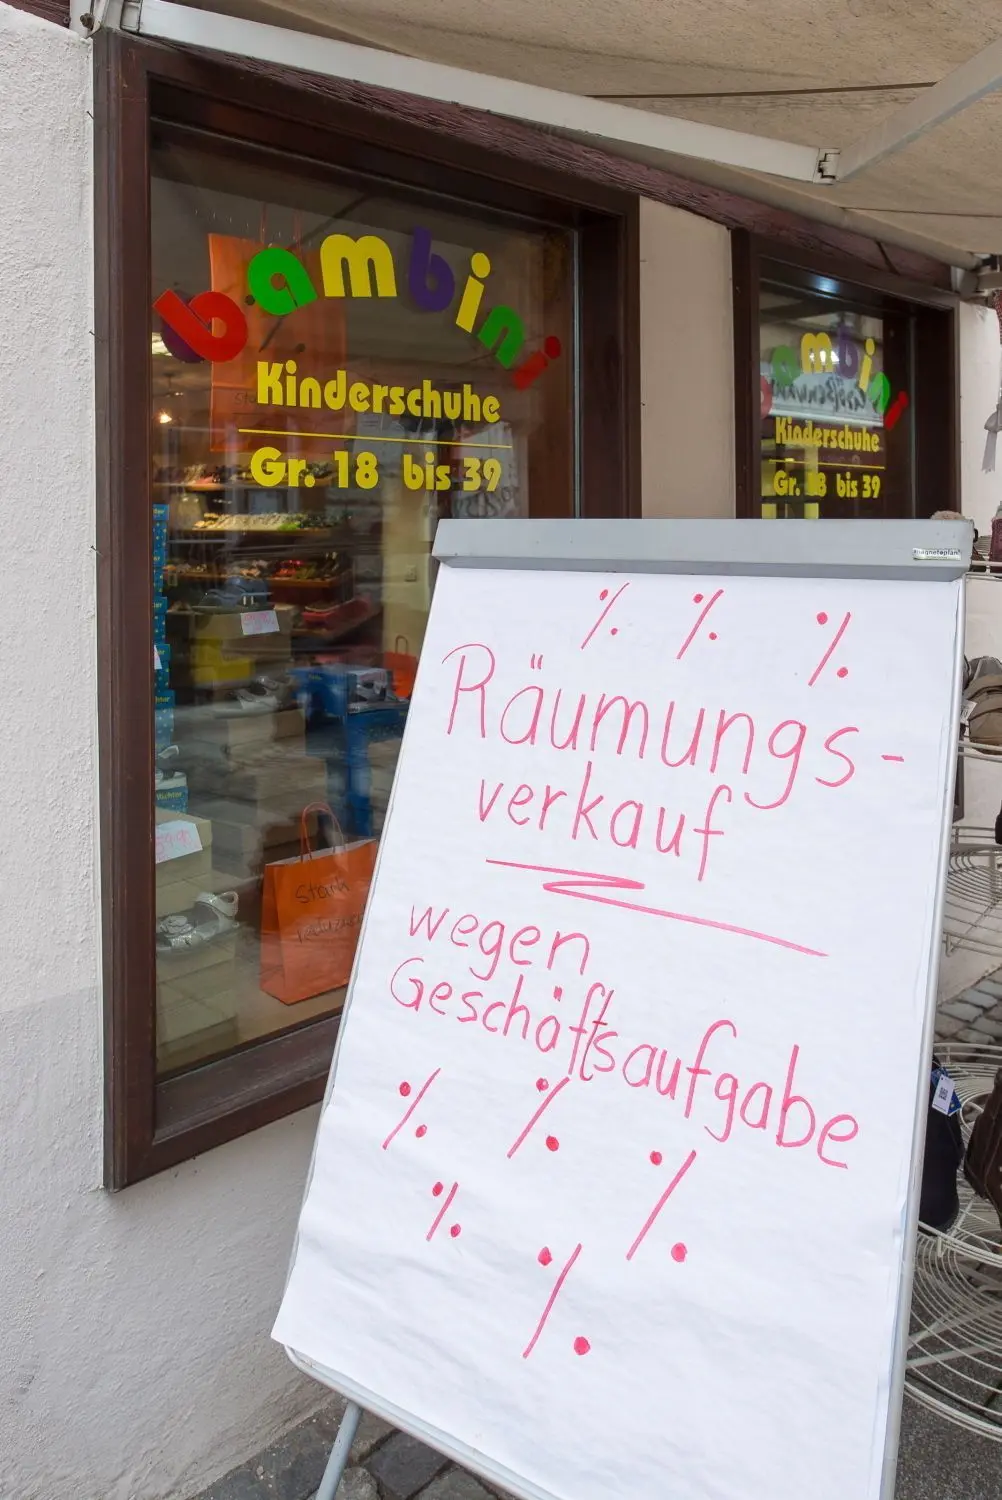 bambini
Kinderschuhe
Gr. 18 bis 39
bambini
Kinderschuhe
Gr. 18 bis 39
magnetoplan
% % %
Räumungs-
verkauf
wegen
Geschäftsaufgabe
% % %
% %
Richter
Stark
reduziert